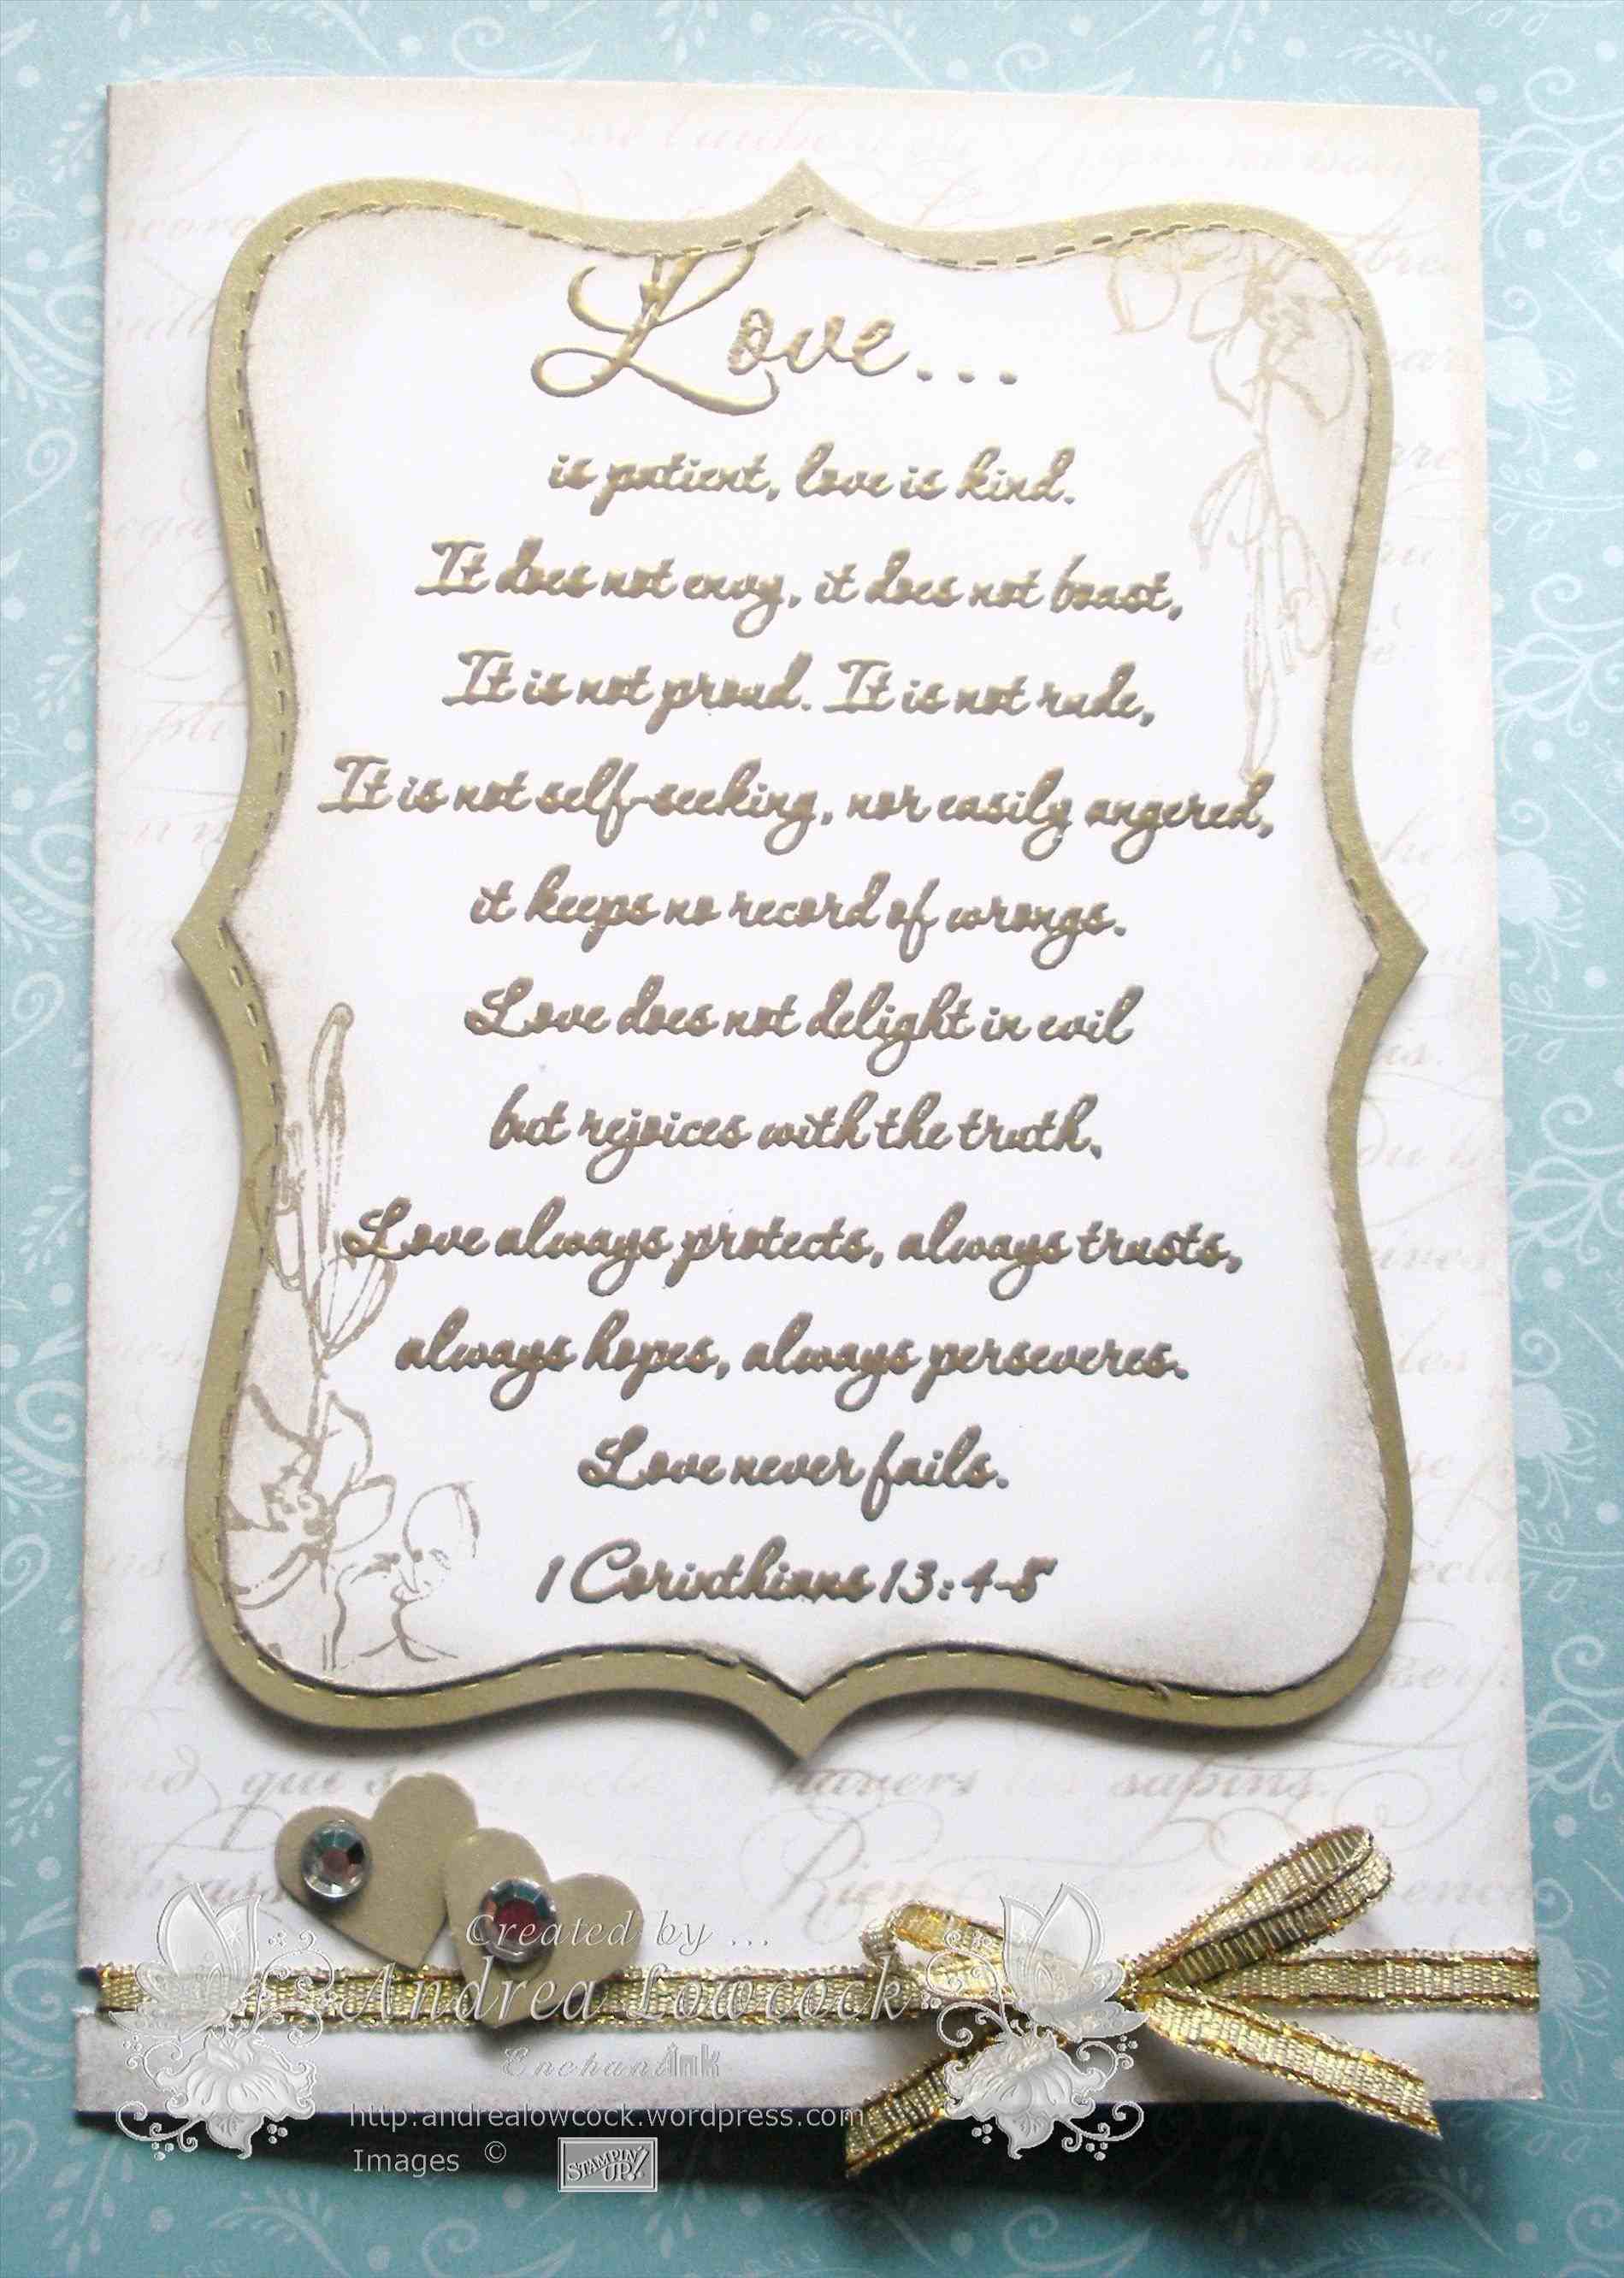 Love...
is patient, love is kind.
It does not envy, it does not boast,
It is not proud. It is not rude,
It is not self-seeking, nor easily angered,
it keeps no record of wrongs.
Love does not delight in evil
but rejoices with the truth.
Love always protects, always trusts,
always hopes, always perseveres.
Love never fails.
1 Corinthians 13:4-8
qui
sapins.
Rien
Created by ...
Andrea Lowcock
Enchantink
http:andrealowcock.wordpress.com
Images ©
STAMPIN' UP!